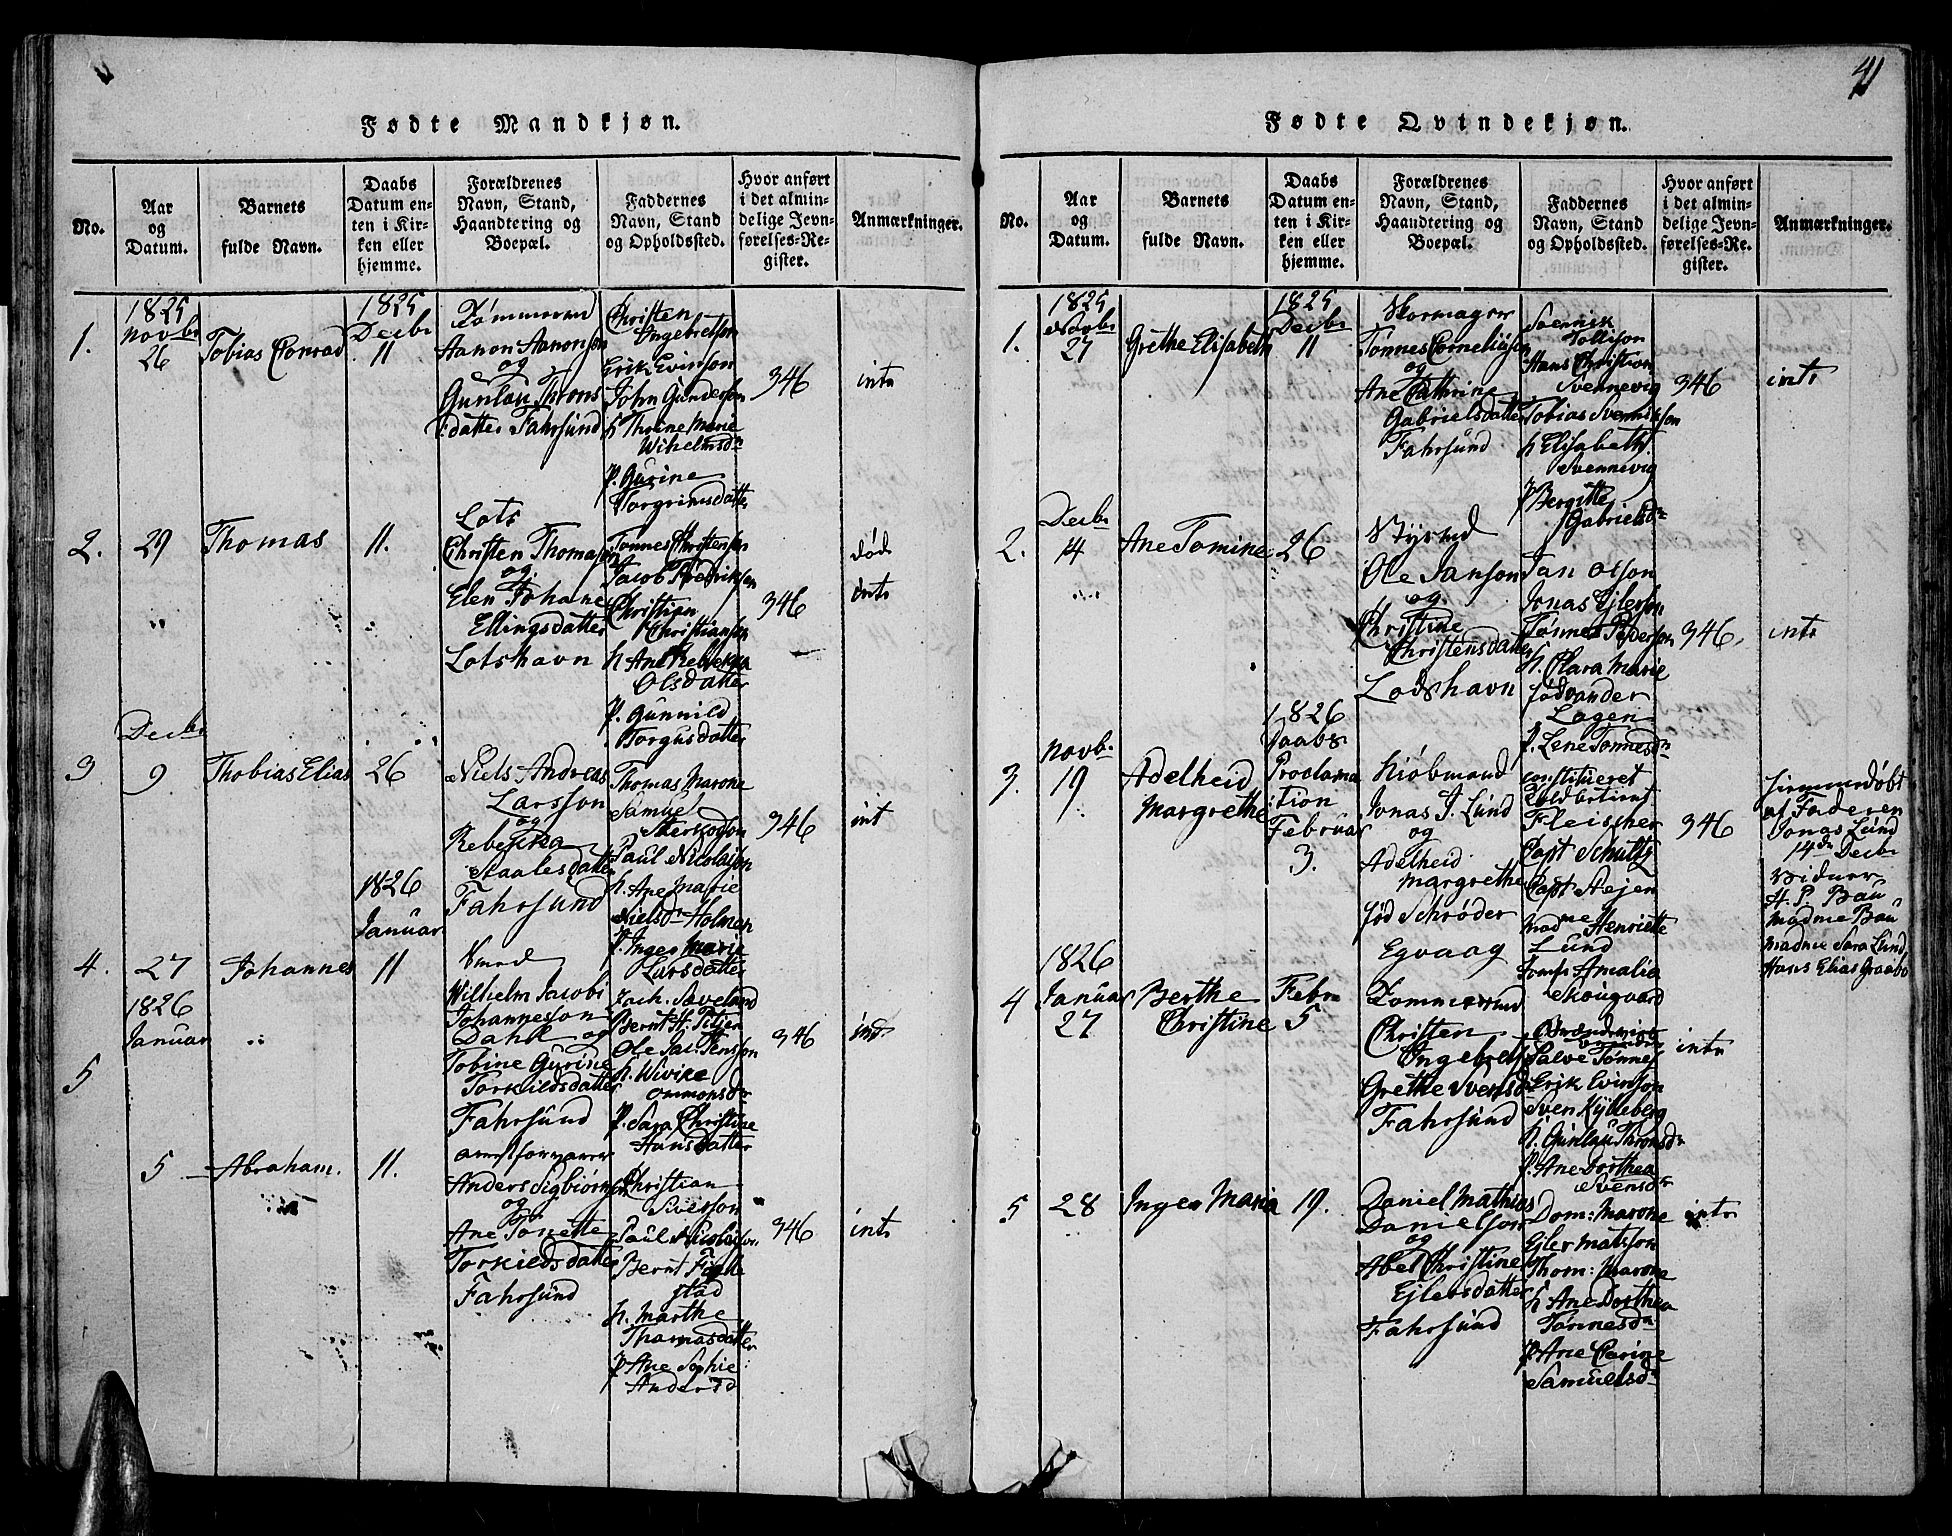 41
Fødte Mandkjøn.
No.
Aar
og
Datum.
Barnets
fulde Navn.
Daabs
Datum en-
ten i Kir-
ken eller
hjemme.
Forældrenes
Navn, Stand,
Haandtering og
Boepæl.
Faddernes
Navn, Stand
og Opholdssted.
Hvor anført
i det almin-
delige Jevn-
førelses-Re-
gister.
Anmærkninger.
1.
1825
Novbr
26
Tobias Conrad
1825
Decbr
11
Tømmermd
Aanon Aanonson
og
Gunlau Throns
datter Fahrsund
Christen
Ingebretson
Erik Evinson
John Gunderson
h Thrine Marie
Wilhelmsdr
P. Gurine
Torgrimsdatter
346
intr
2.
29
Thomas
11.
Lots
Christen Thomason
og
Elen Johane
Ellingsdatter
Lotshavn
Tonnes Christenson
Jacob Fredrikson
Christian
Christianson
h Ane Rebekka
Olsdatter
P. Gunnild
Torgusdatter
346
død
intr
3
Decbr
9.
Thobias Elias
26
Niels Andreas
Larsson
og
Rebekka
Staalesdatter
Fahrsund
Thomas Marone
Samuel
Paul Nicolaison
h. Ane Marie
Nielsdr Holmen
P. Inger Marie
Larsdatter
346
int
4.
27
Johannes
1826
Januar
11
Smed
Wilhelm Jacobi
Johannesson
Dahl og
Tobine Gurine
Torkildsdatter
Fahrsund
Zach. Saveland
Bernt H. Petjer
Ole Jac. Jensson
h. Wivike
Ommonsdr
P. Sara Christine
Hansdatter
346
intr
5
1826
Januar
5
Abraham.
11.
arrestforvarer
Anders Sigbiørnsen
og
Ane Tonette
Torkieldsdatter
Fahrsund
Christian
Sivesson
Paul Nicolaison
Bernt Fielle
stad
h. Marthe
Thomasdatter
P Ane Sophie
Andersd
346
intr
Fødte Qvindekjøn.
No.
Aar
og
Datum.
Barnets
fulde Navn.
Daabs
Datum en-
ten i Kir-
ken eller
hjemme.
Forældrenes
Navn, Stand,
Haandtering og
Boepæl.
Faddernes
Navn, Stand
og Opholdssted.
Hvor anført
i det almin-
delige Jevn-
førelses-Re-
gister.
Anmærkninger.
1.
1825
Novbr
27
Grethe Elisabeth
1825
Decbr
11
Skormager
Tonnes Corneliusen
og
Ane Cathrine
Gabrielsdatter
Fahrsund
Svennik
Tollison
Hans Christian
Svennevig
Tobias Svennikson
h Elisabeth
Svennevig
P Bergitte
Gabrielsdr
346
intr
2.
Decbr
14
Ane Tomine
26
Styrmd
Ole Janson
og
Christine
Christensdatter
Lodshavn
Jan Olson
Jonas Ejlerson
Tønnes Pederson
h. Clara Marie
fød vander
Lagen
P. Lene Tonnesdr
346
intr
3.
Novb.
19
Adelheid
Margrethe
1826
Daabs
Proclama
tion
Februar
3.
Kiøbmand
Jonas J. Lund
og
Adelheid
Margrethe
fød Schrøder
Egvaag
constitueret
Toldbetient
Fleischer
Capt Schultz
Capt Stejen
Madme Henriette
Lund
Jomf Amalia
Skougaard
346
hjemmedøbt
af Faderen
Jonas Lund
14de Decbr
Vidner
H. P. Bau
Madme Bau
Madme Sara Lund
Hans Elias Graabo
4
1826
Januar
27
Berthe
Christine
Febr
5
Tommermd
Christen
Ingebretsen
Grethe Svensd
Fahrsund
Salve Tønnes
Erik Evinson
Sven Kylleberg
h. Gunlau Thronsdr
P. Ane Dorthea
Svensdr
intr
5
28
Inger Maria
19.
Daniel Mathias
Danielson
og
Abel Christine
Ejlersdatter
Fahrsund
Dom: Marone
Ejler Matison
Thom: Marone
h Ane Dorthea
Tønnesdr
P Ane Carine
Samuelsdr
intr